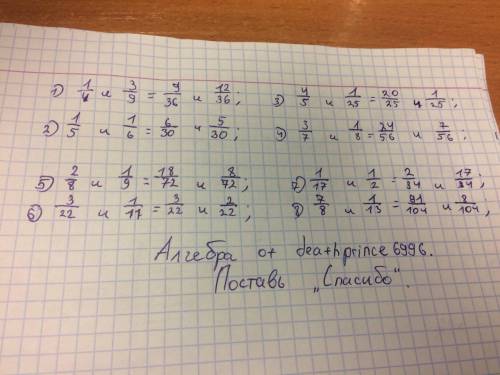 1) 1/4 и 3/9 = 9/36 и 12/36; 3) 4/5 и 1/25 = 20/25 и 1/25;
2) 1/5 и 1/6 = 6/30 и 5/30; 4) 3/7 и 1/8 = 24/56 и 7/56;
5) 2/8 и 1/9 = 18/72 и 8/72; 7) 1/17 и 1/2 = 2/34 и 17/34;
6) 3/22 и 1/11 = 3/22 и 2/22; 8) 7/8 и 1/13 = 91/104 и 8/104,
Алгебра от deathprince6996.
Поставь „Спасибо".